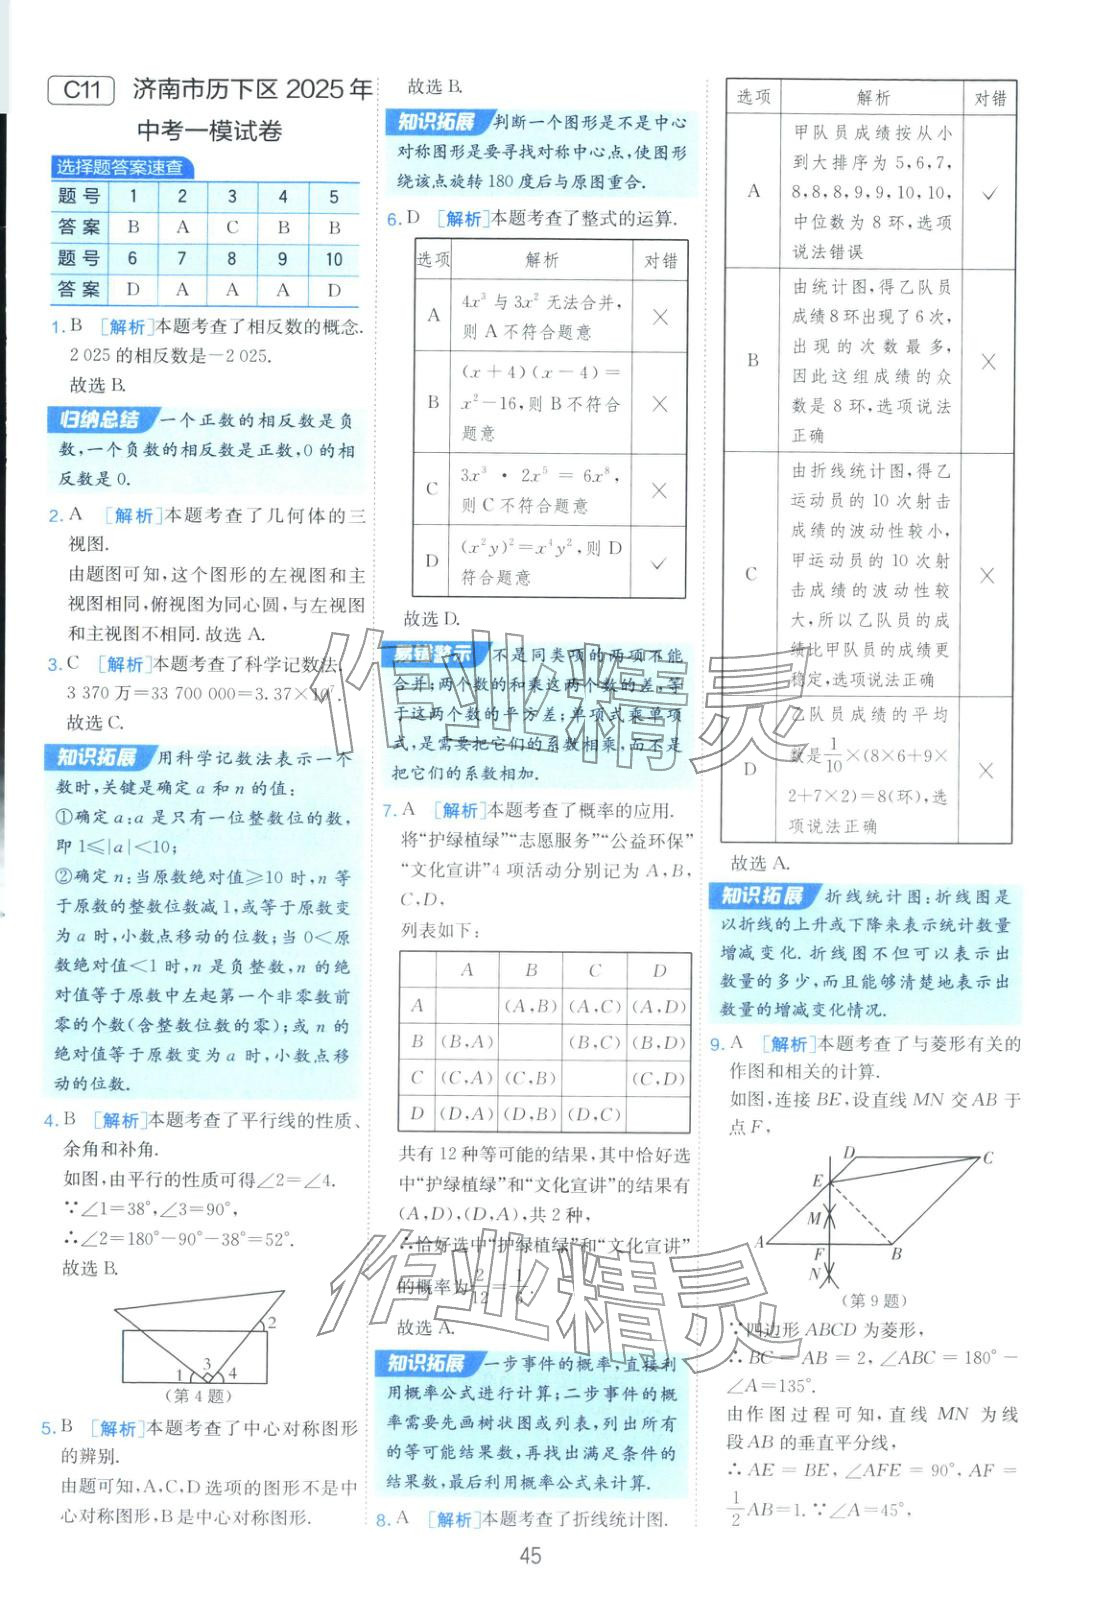 C11 济南市历下区 2025 年
中考一模试卷
选择题答案速查
题号 1 2 3 4 5
答案 B A C B B
题号 6 7 8 9 10
答案 D A A A D
1. B [解析]本题考查了相反数的概念.
2 025 的相反数是－2 025.
故选 B.
归纳总结 一个正数的相反数是负
数,一个负数的相反数是正数,0 的相
反数是 0.
2. A [解析]本题考查了几何体的三
视图.
由题图可知,这个图形的左视图和主
视图相同,俯视图为同心圆,与左视图
和主视图不相同.故选 A.
3. C [解析]本题考查了科学记数法.
3 370 万＝33 700 000＝3.37×10⁷.
故选 C.
知识拓展 用科学记数法表示一个
数时,关键是确定 a 和 n 的值:
①确定 a:a 是只有一位整数位的数,
即 1≤|a|<10;
②确定 n:当原数绝对值≥10 时,n 等
于原数的整数位数减 1,或等于原数变
为 a 时,小数点移动的位数;当 0<原
数绝对值<1 时,n 是负整数,n 的绝
对值等于原数中左起第一个非零数前
零的个数(含整数位数的零);或 n 的
绝对值等于原数变为 a 时,小数点移
动的位数.
4. B [解析]本题考查了平行线的性质、
余角和补角.
如图,由平行的性质可得∠2＝∠4.
∵∠1＝38°,∠3＝90°,
∴∠2＝180°－90°－38°＝52°.
故选 B.
2
3
1 4
(第 4 题)
5. B [解析]本题考查了中心对称图形
的辨别.
由题可知,A,C,D 选项的图形不是中
心对称图形,B 是中心对称图形.
故选 B.
知识拓展 判断一个图形是不是中心
对称图形是要寻找对称中心点,使图形
绕该点旋转 180 度后与原图重合.
6. D [解析]本题考查了整式的运算.
选项 解析 对错
A 4x³ 与 3x² 无法合并,
则 A 不符合题意 ×
B (x＋4)(x－4)＝
x²－16,则 B 不符合
题意 ×
C 3x³ · 2x⁵ ＝ 6x⁸,
则 C 不符合题意 ×
D (x²y)²＝x⁴y²,则 D
符合题意 ✓
故选 D.
易错警示 不是同类项的两项不能
合并;两个数的和乘这两个数的差,等
于这两个数的平方差;单项式乘单项
式,是需要把它们的系数相乘,而不是
把它们的系数相加.
7. A [解析]本题考查了概率的应用.
将“护绿植绿”“志愿服务”“公益环保”
“文化宣讲”4 项活动分别记为 A,B,
C,D,
列表如下:
A B C D
A (A,B) (A,C) (A,D)
B (B,A) (B,C) (B,D)
C (C,A) (C,B) (C,D)
D (D,A) (D,B) (D,C)
共有 12 种等可能的结果,其中恰好选
中“护绿植绿”和“文化宣讲”的结果有
(A,D),(D,A),共 2 种,
∴恰好选中“护绿植绿”和“文化宣讲”
的概率为2/12＝1/6.
故选 A.
知识拓展 一步事件的概率,直接利
用概率公式进行计算;二步事件的概
率需要先画树状图或列表,列出所有
的等可能结果数,再找出满足条件的
结果数,最后利用概率公式来计算.
8. A [解析]本题考查了折线统计图.
选项 解析 对错
A 甲队员成绩按从小
到大排序为 5,6,7,
8,8,8,9,9,10,10,
中位数为 8 环,选项
说法错误 ✓
B 由统计图,得乙队员
成绩 8 环出现了 6 次,
出现的次数最多,
因此这组成绩的众
数是 8 环,选项说法
正确 ×
C 由折线统计图,得乙
运动员的 10 次射击
成绩的波动性较小,
甲运动员的 10 次射
击成绩的波动性较
大,所以乙队员的成
绩比甲队员的成绩
稳定,选项说法正确 ×
D 乙队员成绩的平均
数是1/10×(8×6＋9×
2＋7×2)＝8(环),选
项说法正确 ×
故选 A.
知识拓展 折线统计图:折线图是
以折线的上升或下降来表示统计数量
增减变化. 折线图不但可以表示出
数量的多少,而且能够清楚地表示出
数量的增减变化情况.
9. A [解析]本题考查了与菱形有关的
作图和相关的计算.
如图,连接 BE,设直线 MN 交 AB 于
点 F,
D C
E
M
A F B
N
(第 9 题)
∵四边形 ABCD 为菱形,
∴BC＝AB＝2,∠ABC＝180°－
∠A＝135°.
由作图过程可知,直线 MN 为线
段 AB 的垂直平分线,
∴AE＝BE,∠AFE＝90°,AF＝
1/2AB＝1.∵∠A＝45°,
45
作业精灵
作业精灵